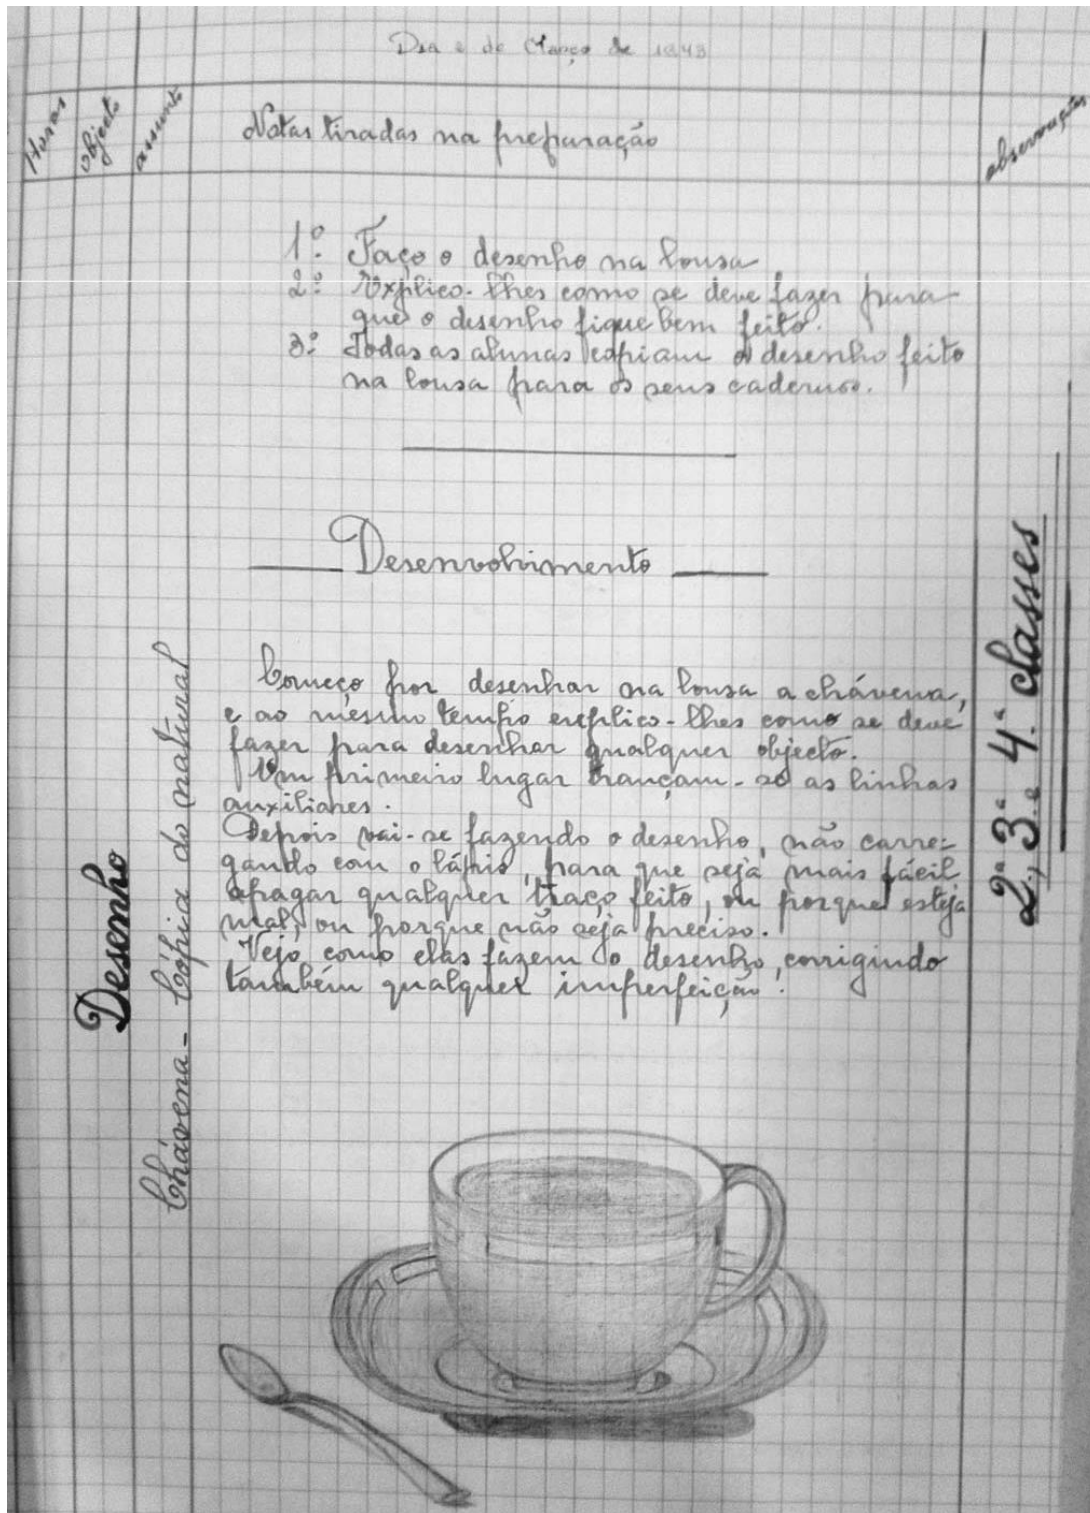 Dia de Março de 1943
Horas
objecto
assunto
Notas tiradas na preparação
observações
1.º Faço o desenho na lousa
2.º Explico-lhes como se deve fazer para
que o desenho fique bem feito.
3.º Todas as alunas copiam o desenho feito
na lousa para os seus cadernos.
Desenvolvimento
Começo por desenhar na lousa a chávena,
e ao mesmo tempo explico-lhes como se deve
fazer para desenhar qualquer objecto.
Em primeiro lugar trançam-se as linhas
auxiliares.
Depois vai-se fazendo o desenho, não carre-
gando com o lápis, para que seja mais fácil
apagar qualquer traço feito, ou porque esteja
mal, ou porque não seja preciso.
Vejo como elas fazem o desenho, corrigindo
também qualquer imperfeição.
Desenho
Chávena - Cópia do natural
2ª, 3ª e 4ª classes